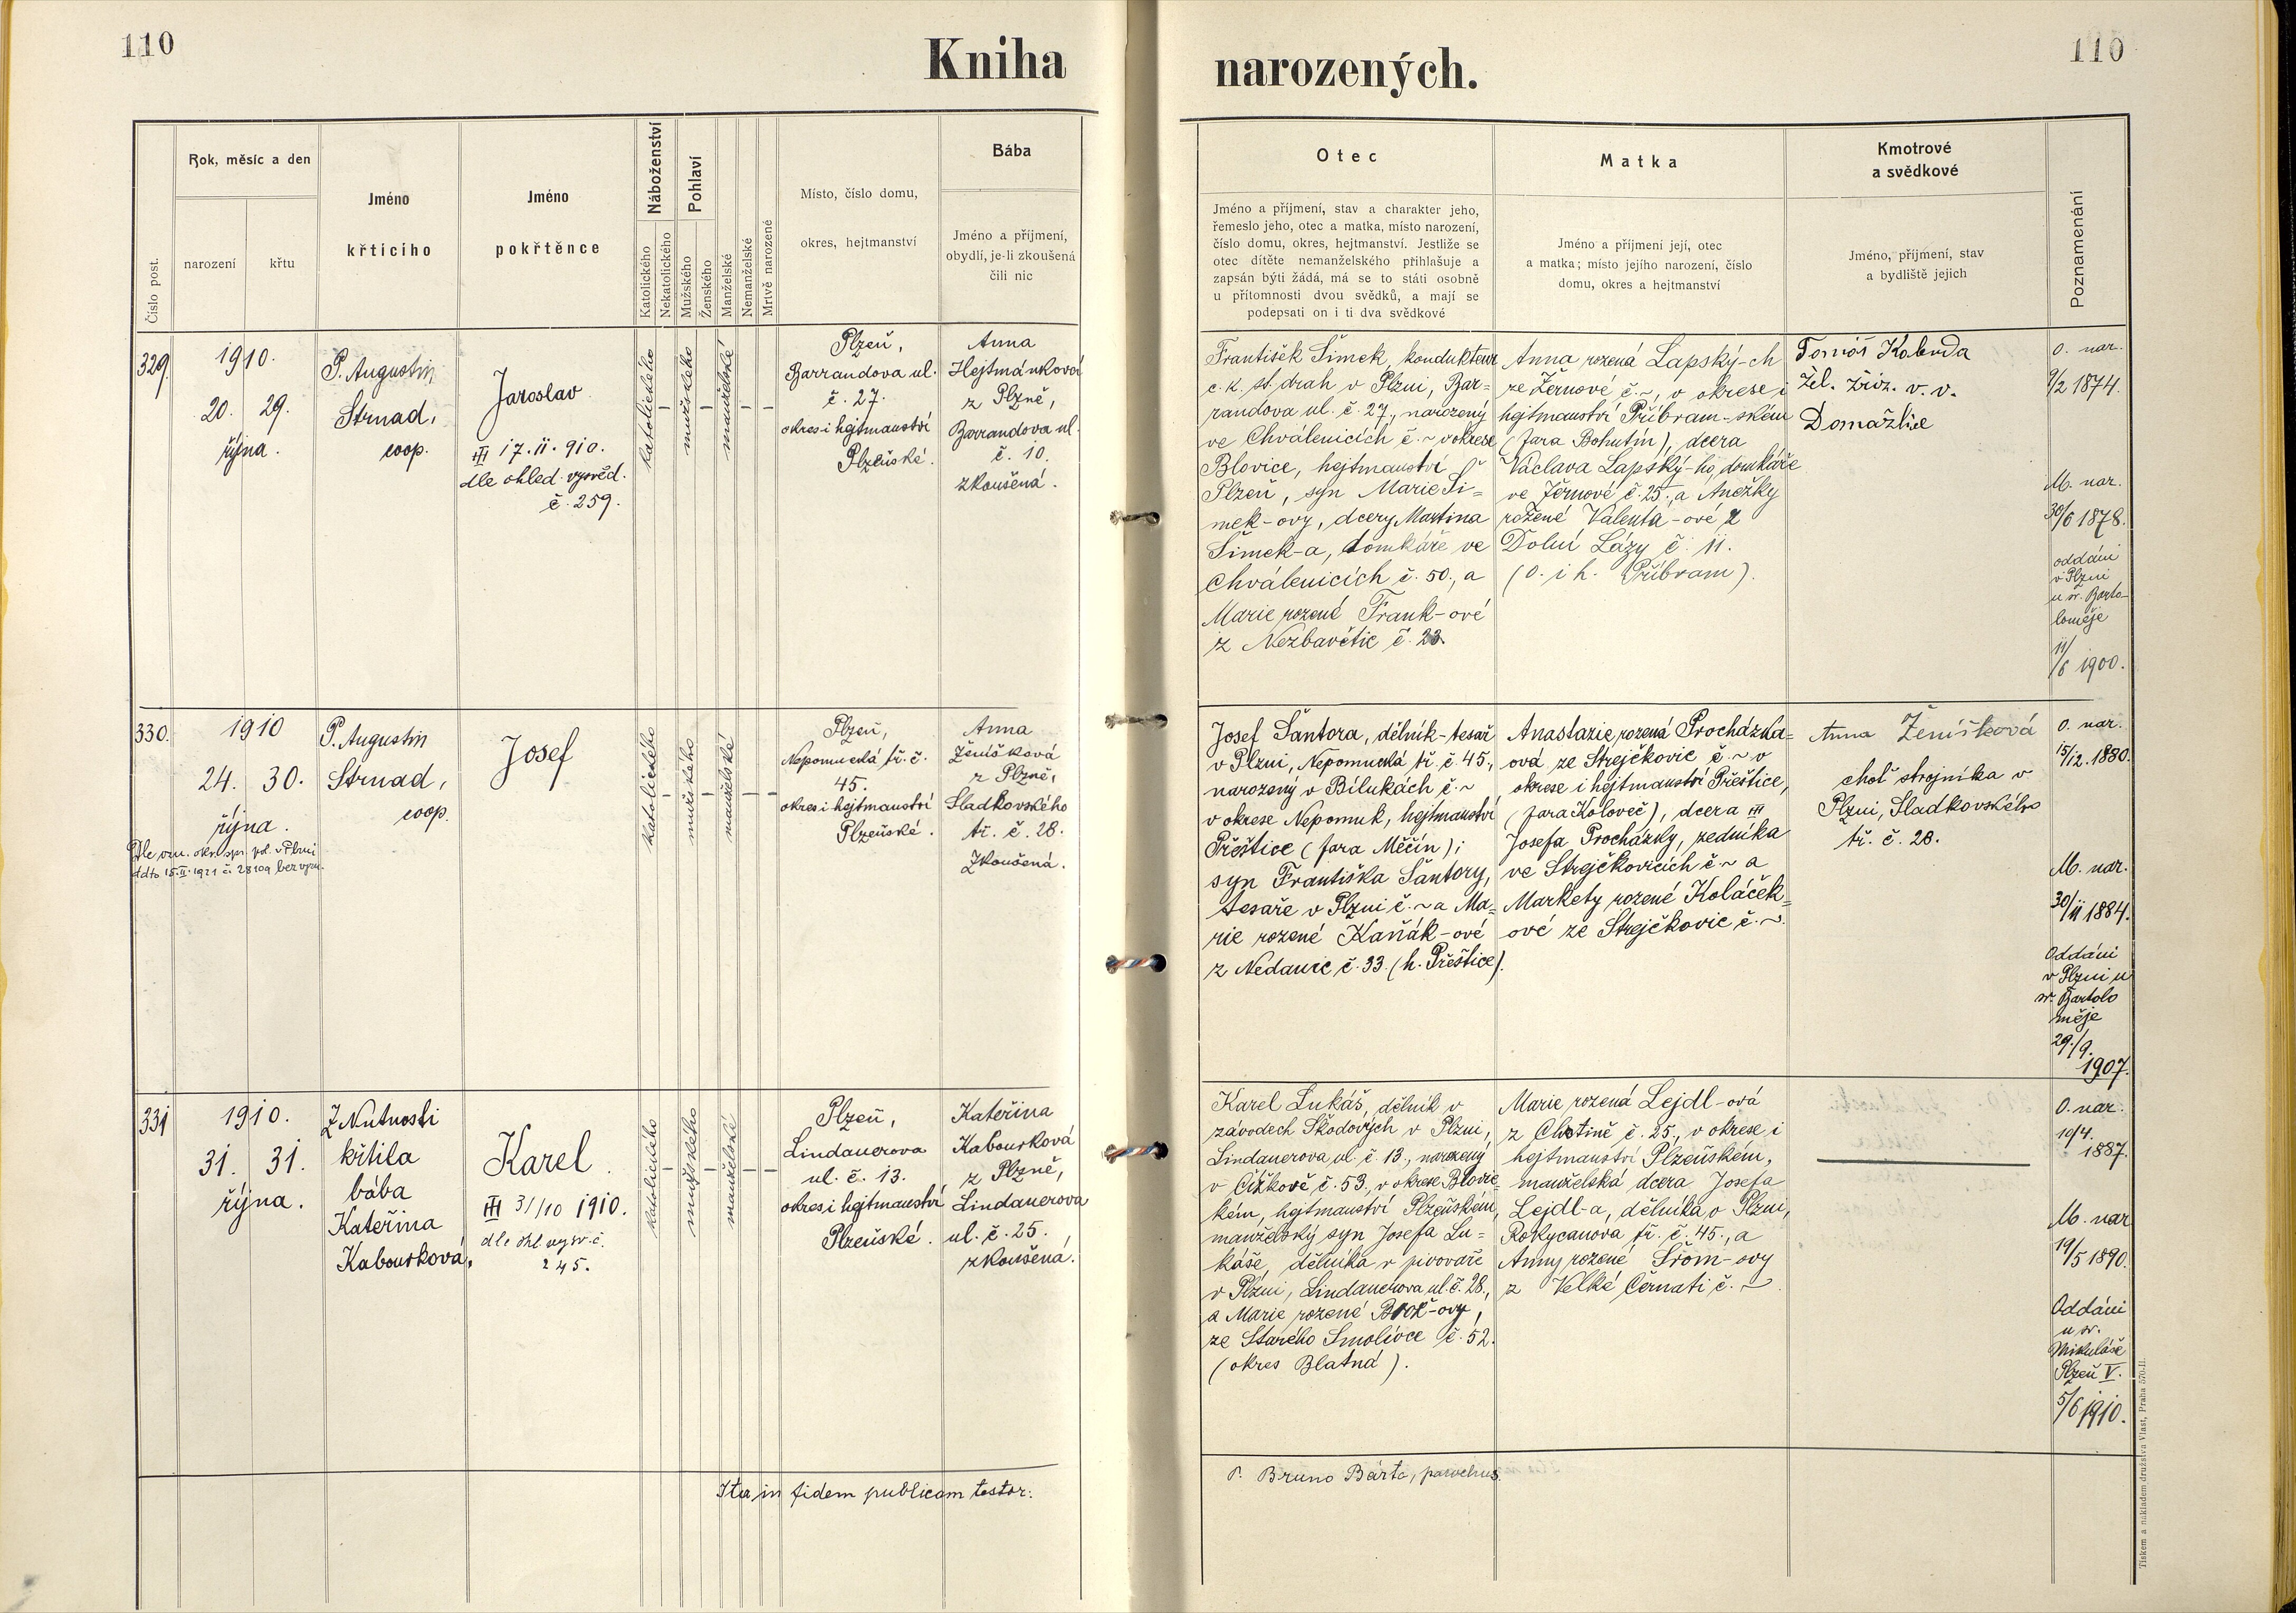 110
Kniha
narozených.
110
Číslo post.
Rok, měsíc a den
narození
křtu
Jméno
křtícího
Jméno
pokřtěnce
Náboženství
Katolického
Nekatolického
Pohlaví
Mužského
Ženského
Manželské
Nemanželské
Mrtvě narozené
Místo, číslo domu,
okres, hejtmanství
Bába
Jméno a příjmení,
obydlí, je-li zkoušená
čili nic
Otec
Jméno a příjmení, stav a charakter jeho,
řemeslo jeho, otec a matka, místo narození,
číslo domu, okres, hejtmanství. Jestliže se
otec dítěte nemanželského přihlašuje a
zapsán býti žádá, má se to státi osobně
u přítomnosti dvou svědků, a mají se
podepsati on i ti dva svědkové
Matka
Jméno a příjmení její, otec
a matka; místo jejího narození, číslo
domu, okres a hejtmanství
Kmotrové
a svědkové
Jméno, příjmení, stav
a bydliště jejich
Poznamenání
329.
1910.
20. 29.
října.
P. Augustin
Strnad,
coop.
Jaroslav
17.11.910.
dle ohled. vysvěd.
č. 259.
katolického
–
mužského
–
manželské
– –
Plzeň,
Barrandova ul.
č. 27.
okres i hejtmanství
Plzeňské.
Anna
Hejtmánková
z Plzně,
Barrandova ul.
č. 10.
zkoušená.
František Šimek, kondukteur
c. k. st. drah v Plzni, Bar=
randova ul. č. 27., narozený
ve Chválenicích č. ~ v okrese
Blovice, hejtmanství
Plzeň, syn Marie Ši=
mek-ovy, dcery Martina
Šimek-a, domkáře ve
Chválenicích č. 50., a
Marie rozené Frank-ové
z Nezbavětic č. 23.
Anna rozená Lapský-ch
ze Žernové č. ~, v okrese i
hejtmanství Příbram-ském
(fara Bohutín), dcera
Václava Lapský-ho, domkáře
ve Žernové č. 25., a Anežky
rozené Valenta-ové z
Dolní Lázy č. 11.
(o. i h. Příbram).
Tomáš Kabrda
žel. zříz. v. v.
Domažlice
O. nar.
9/2 1874.
M. nar.
30/6 1878.
oddáni
v Plzni
u sv. Barto-
loměje
11/6 1900.
330.
1910
24. 30.
října.
Dle vyn. okr. spr. pol. v Plzni
ddto 15.II.1921 č. 28109 bez vyzn.
P. Augustin
Strnad,
coop.
Josef
katolického
–
mužského
–
manželské
– –
Plzeň,
Nepomucká tř. č.
45.
okres i hejtmanství
Plzeňské.
Anna
Ženíšková
z Plzně,
Sladkovského
tř. č. 28.
Zkoušená.
Josef Šantora, dělník-tesař
v Plzni, Nepomucká tř. č. 45.,
narozený v Bílukách č. ~
v okrese Nepomuk, hejtmanství
Přeštice (fara Měčín);
syn Františka Šantory,
tesaře v Plzni č. ~ a Ma=
rie rozené Kaňák-ové
z Nedanic č. 33. (h. Přeštice).
Anastazie rozená Procházka=
ová ze Strejčkovic č. ~ v
okrese i hejtmanství Přeštice,
(fara Koloveč), dcera
Josefa Procházky, zedníka
ve Strejčkovicích č. ~ a
Markety rozené Koláček=
ové ze Strejčkovic č. ~.
Anna Ženíšková
choť strojníka v
Plzni, Sladkovského
tř. č. 28.
O. nar.
15/12. 1880.
M. nar.
30/11 1884.
Oddáni
v Plzni u
sv. Bartolo
měje
29./9.
1907.
331
1910.
31. 31.
října.
Z Nutnosti
křtila
bába
Kateřina
Kabourková.
Karel.
31/10 1910.
dle ohl. vysv. č.
245.
katolického
–
mužského
–
manželské
– –
Plzeň,
Lindauerova
ul. č. 13.
okres i hejtmanství
Plzeňské.
Kateřina
Kabourková
z Plzně,
Lindauerova
ul. č. 25.
zkoušená.
Karel Lukáš, dělník v
závodech Škodových v Plzni,
Lindauerova ul. č. 13., narozený
v Čížkově č. 53., v okrese Blovic=
kém, hejtmanství Plzeňském,
manželský syn Josefa Lu=
káše, dělníka v pivovaře
v Plzni, Lindauerova ul. č. 28.,
a Marie rozené Brož-ovy,
ze Starého Smolivce č. 52.
(okres Blatná).
Marie rozená Lejdl-ová
z Chotině č. 25., v okrese i
hejtmanství Plzeňském,
manželská dcera Josefa
Lejdl-a, dělníka v Plzni,
Rokycanova tř. č. 45., a
Anny rozené Šrom-ovy
z Velké Černati č. ~.
O. nar.
10/4.
1887.
M. nar
19/5 1890.
Oddáni
u sv.
Mikuláše
Plzeň V.
5/6 1910.
Ita in fidem publicam testor:
P. Bruno Bárta, parochus.
Tiskem a nákladem družstva Vlast, Praha 570-II.